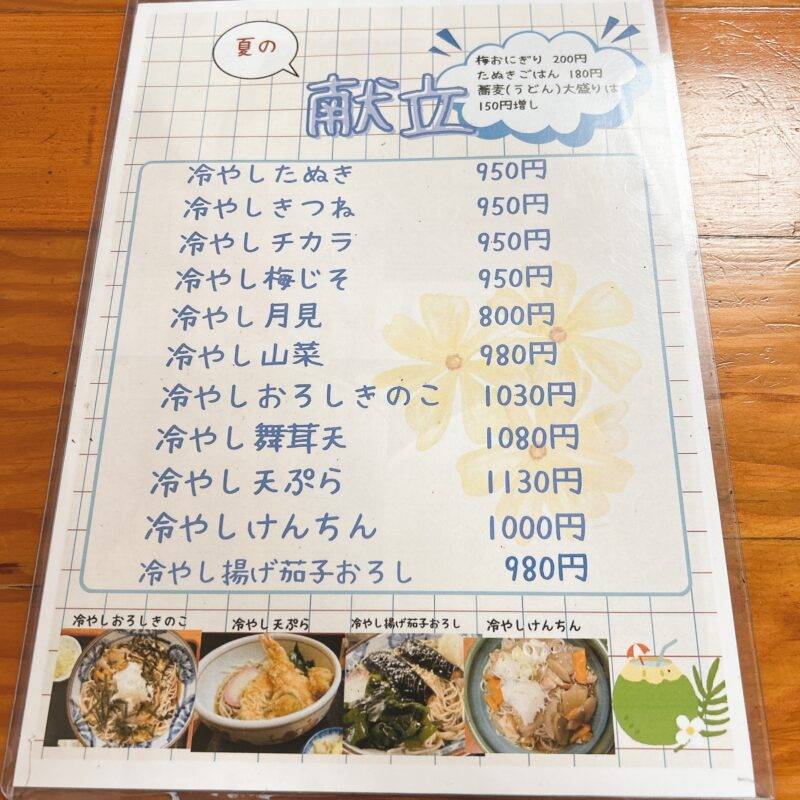 夏の
献立
梅おにぎり 200円
たぬきごはん 180円
蕎麦(うどん)大盛りは
150円増し
冷やしたぬき 950円
冷やしきつね 950円
冷やしチカラ 950円
冷やし梅じそ 950円
冷やし月見 800円
冷やし山菜 980円
冷やしおろしきのこ 1030円
冷やし舞茸天 1080円
冷やし天ぷら 1130円
冷やしけんちん 1000円
冷やし揚げ茄子おろし 980円
冷やしおろしきのこ 冷やし天ぷら 冷やし揚げ茄子おろし 冷やしけんちん